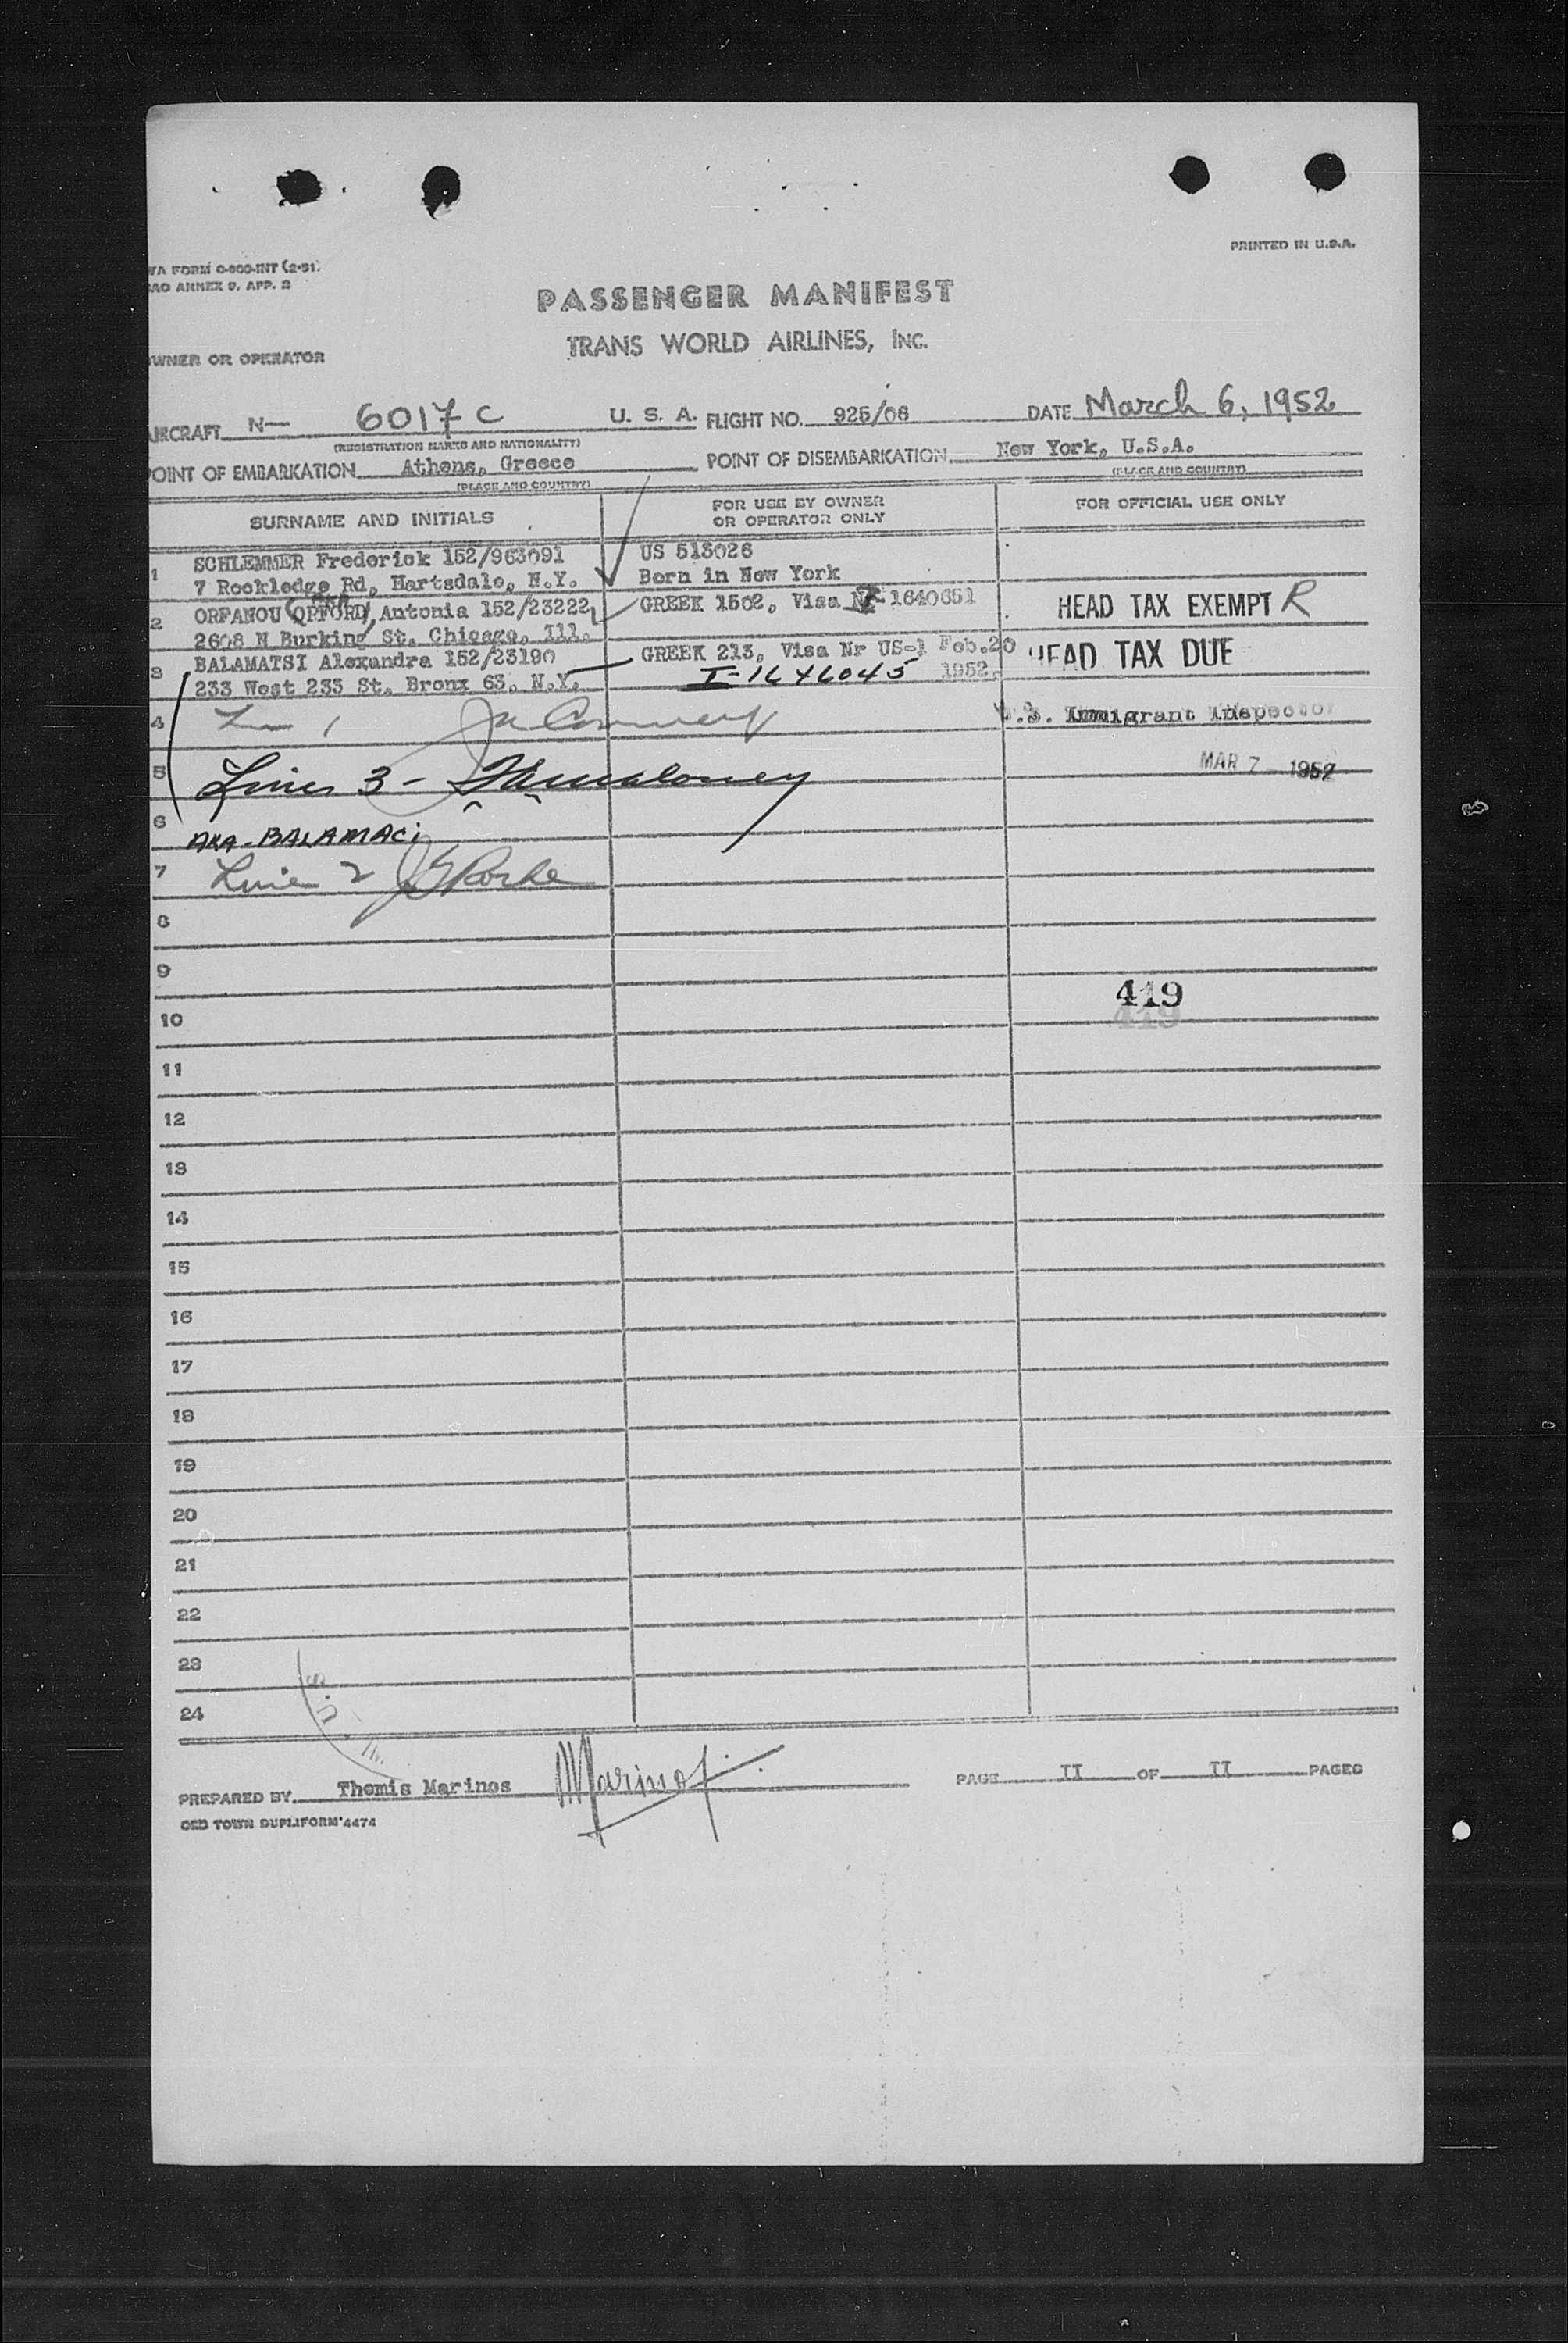 PRINTED IN U.S.A.
WA FORM O-800-INT (2-51)
CAO ANNEX 9, APP. 2
PASSENGER MANIFEST
TRANS WORLD AIRLINES, INC.
OWNER OR OPERATOR
AIRCRAFT N— 6017C U. S. A. FLIGHT NO. 925/06 DATE March 6, 1952
(REGISTRATION MARKS AND NATIONALITY)
POINT OF EMBARKATION Athens, Greece POINT OF DISEMBARKATION New York, U.S.A.
(PLACE AND COUNTRY) (PLACE AND COUNTRY)
SURNAME AND INITIALS FOR USE BY OWNER OR OPERATOR ONLY FOR OFFICIAL USE ONLY
1 SCHLEMMER Frederick 152/963091 US 513026
7 Rockledge Rd, Hartsdale, N.Y. Born in New York
2 ORFANOU (ORFORD), Antonia 152/23222 GREEK 1502, Visa 1640651 HEAD TAX EXEMPT R
2608 N Burking St. Chicago, Ill.
3 BALAMATSI Alexandra 152/23190 GREEK 213, Visa Nr US-1 Feb.20 HEAD TAX DUE
233 West 233 St. Bronx 63, N.Y. I-1646045 1952.
4 U.S. Immigrant Inspector
5 Lines 3 - MAR 7 1952
6
AKA - BALAMACI
7 Line 2
8
9
419
10
11
12
13
14
15
16
17
18
19
20
21
22
23
24
PREPARED BY Themis Marinos Marinos PAGE II OF II PAGES
OLD TOWN DUPLIFORM 4474